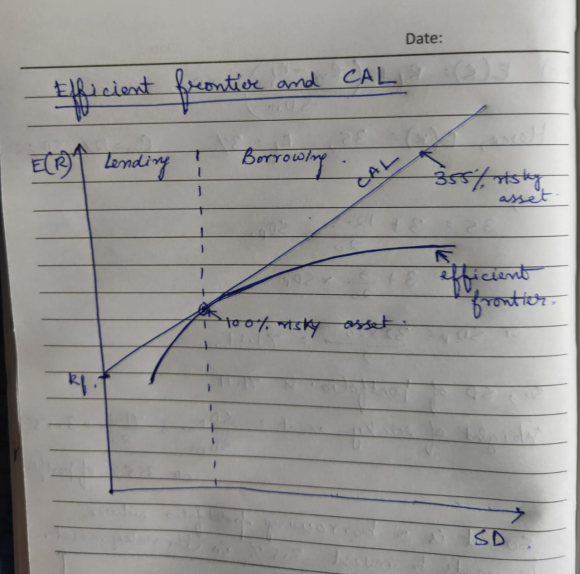 Date:
Efficient frontier and CAL
E(R) Lending Borrowing.
CAL
355% risky
asset.
efficient
frontier.
100% risky asset.
Rf.
SD.